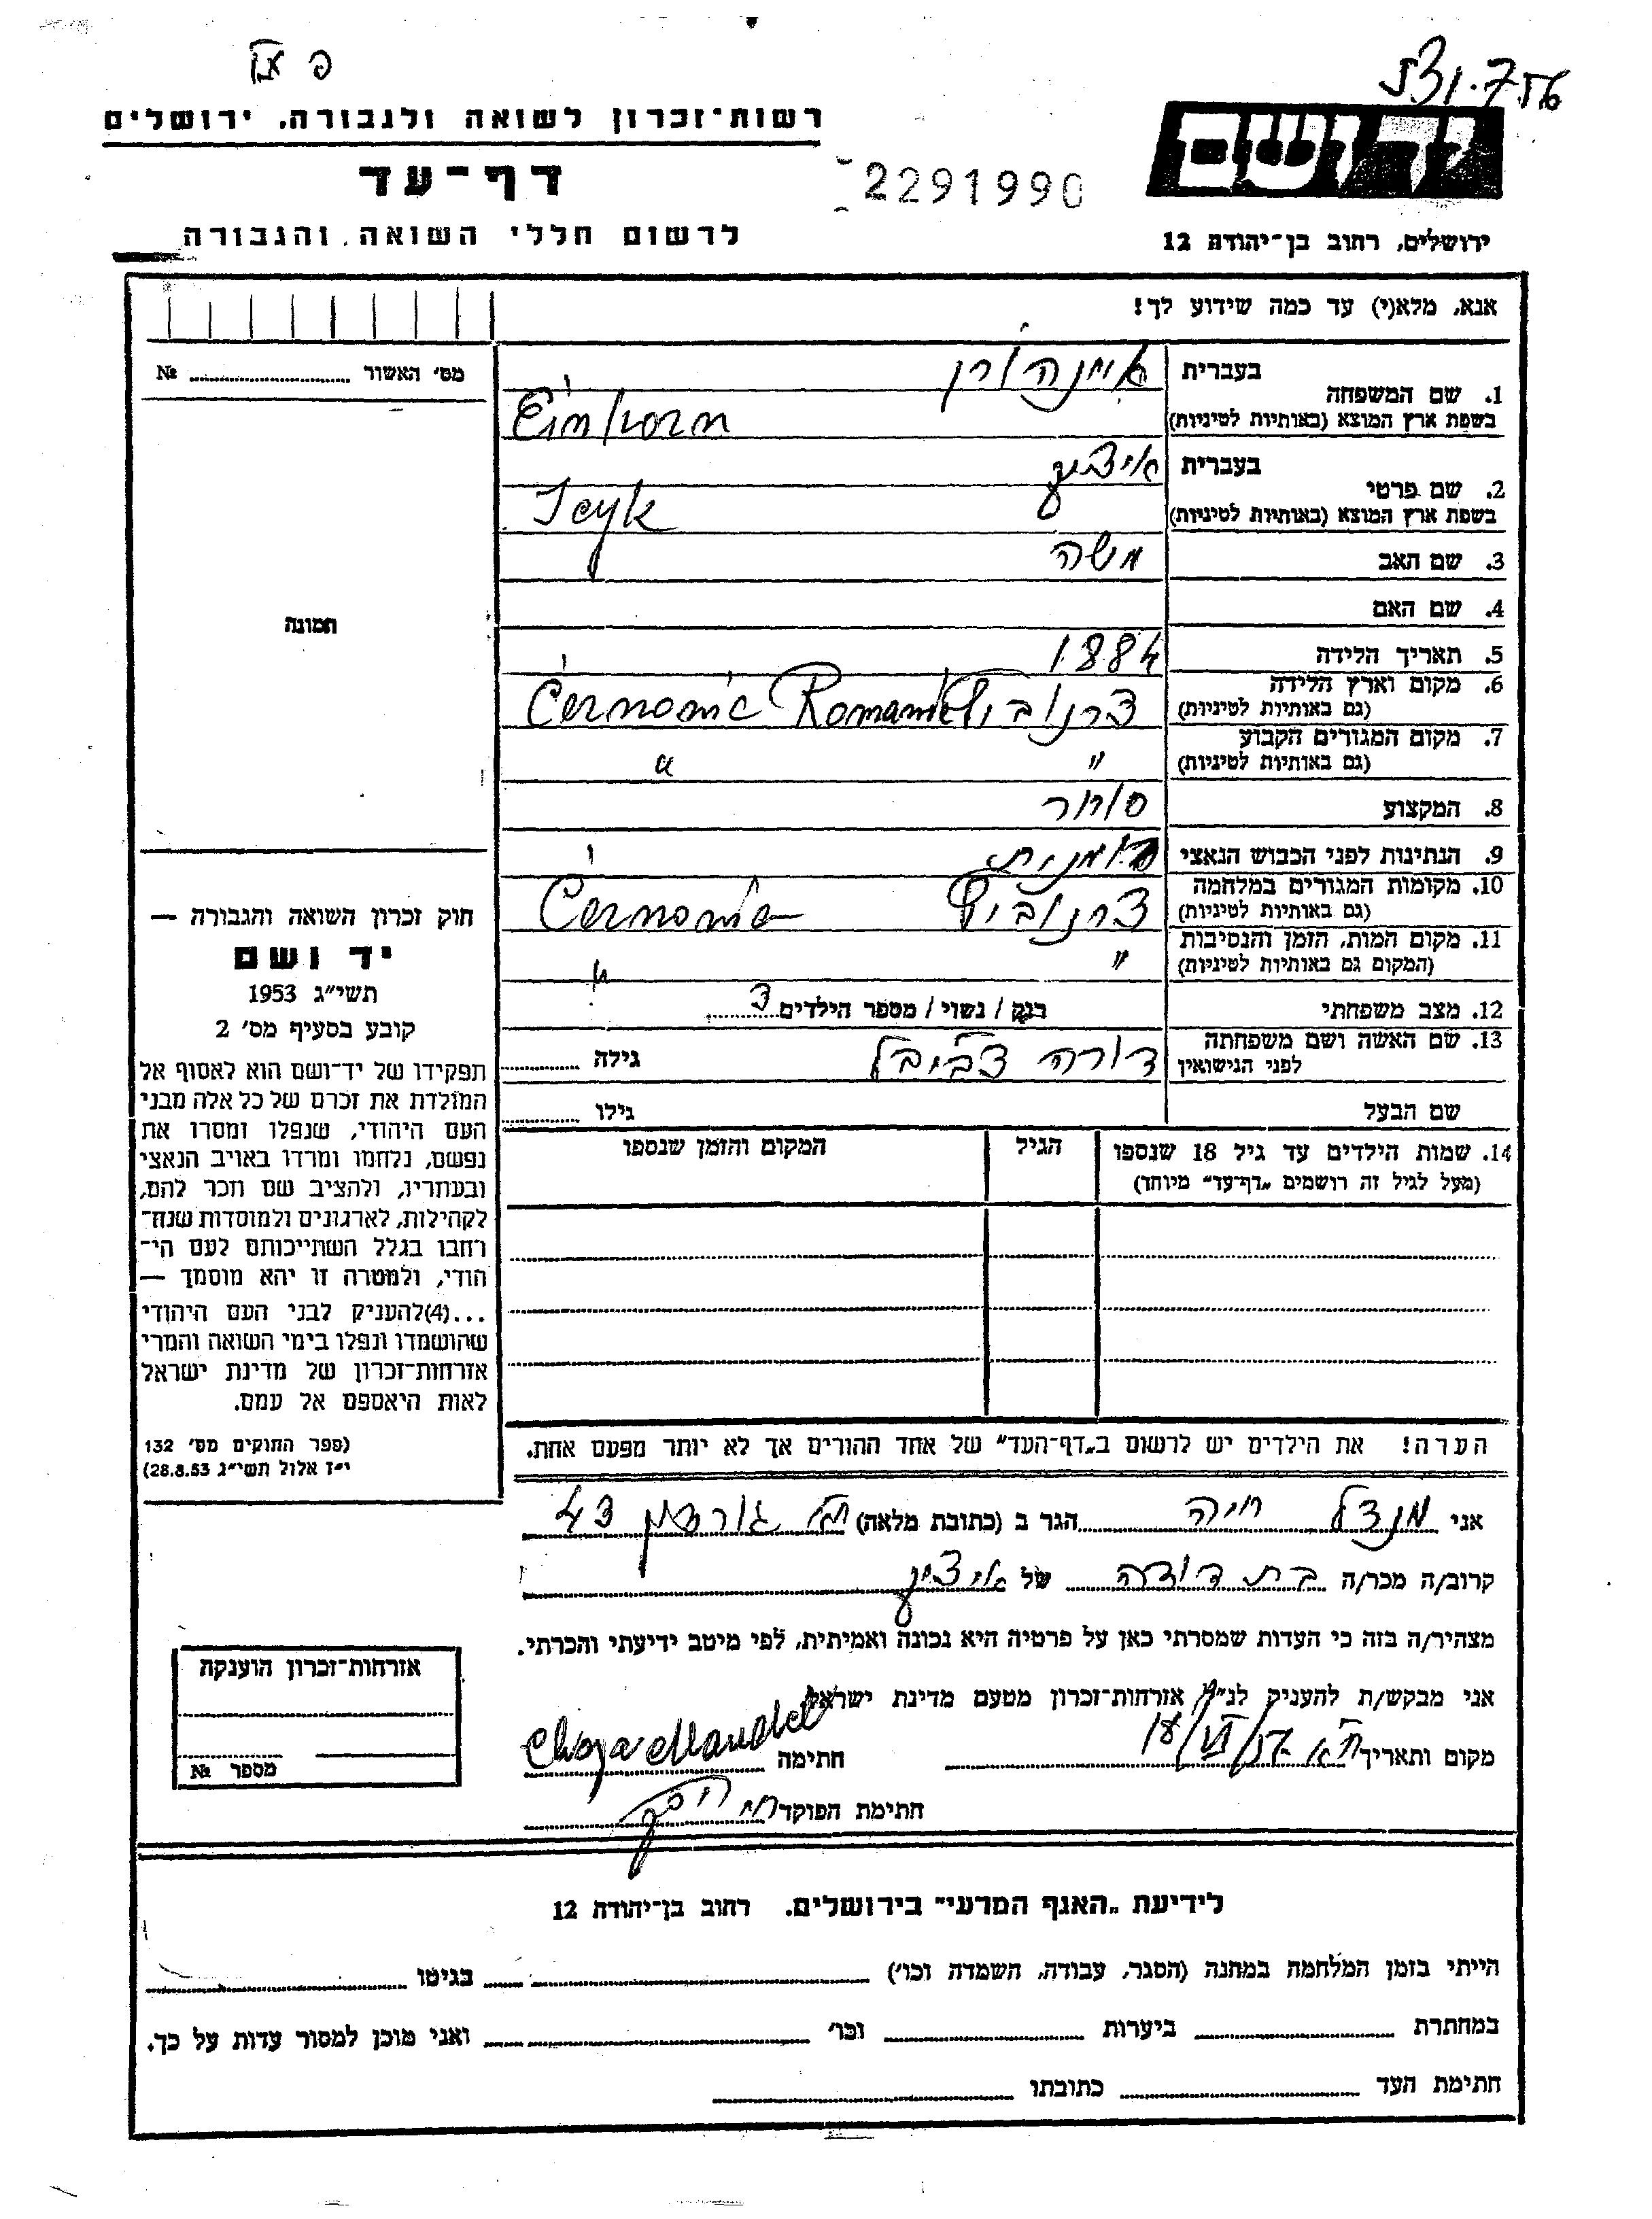 531.7 56
רשות־זכרון לשואה ולגבורה, ירושלים
יד ושם
דף־עד
2291990
לרשום חללי השואה והגבורה
ירושלים, רחוב בן־יהודה 12
אנא, מלא(י) עד כמה שידוע לך!
מס׳ האשור № 
1. שם המשפחה בעברית איינהורן
בשפת ארץ המוצא (באותיות לטיניות) Einhorn
2. שם פרטי בעברית איציק
בשפת ארץ המוצא (באותיות לטיניות) Icyk
3. שם האב משה
4. שם האם
תמונה
5. תאריך הלידה 1884
6. מקום וארץ הלידה צרנוביץ Černovic
(גם באותיות לטיניות)
7. מקום המגורים הקבוע " "
(גם באותיות לטיניות)
8. המקצוע סוחר
9. הנתינות לפני הכבוש הנאצי רומנית
10. מקומות המגורים במלחמה צרנוביץ Černovic
(גם באותיות לטיניות)
11. מקום המות, הזמן והנסיבות " "
(המקום גם באותיות לטיניות)
12. מצב משפחתי רווק / נשוי / מספר הילדים 3
13. שם האשה ושם משפחתה לפני הנישואין דורה גילה
שם הבעל גילו
14. שמות הילדים עד גיל 18 שנספו הגיל המקום והזמן שנספו
(מעל לגיל זה רושמים „דף־עד" מיוחד)
חוק זכרון השואה והגבורה —
יד ושם
תשי״ג 1953
קובע בסעיף מס׳ 2
תפקידו של יד־ושם הוא לאסוף אל
המולדת את זכרם של כל אלה מבני
העם היהודי, שנפלו ומסרו את
נפשם, נלחמו ומרדו באויב הנאצי
ובעוזריו, ולהציב שם וזכר להם,
לקהילות, לארגונים ולמוסדות שנח־
רחבו בגלל השתייכותם לעם הי־
הודי, ולמטרה זו יהא מוסמך —
...(4)להעניק לבני העם היהודי
שהושמדו ונפלו בימי השואה והמרי
אזרחות־זכרון של מדינת ישראל
לאות היאספם אל עמם.
(ספר החוקים מס׳ 132
י״ז אלול תשי״ג 28.8.53)
הערה! את הילדים יש לרשום ב„דף־העד" של אחד ההורים אך לא יותר מפעם אחת.
אני מנדל חיה הגר ב (כתובת מלאה) ת״א גורדון 43
קרוב/ה מכר/ה בת דודה של איציק
מצהיר/ה בזה כי העדות שמסרתי כאן על פרטיה היא נכונה ואמיתית, לפי מיטב ידיעתי והכרתי.
אני מבקש/ת להעניק לנ״ל אזרחות־זכרון מטעם מדינת ישראל
מקום ותאריך ת״א חתימה Chaya Mandel
חתימת הפוקד
אזרחות־זכרון הוענקה
מספר №
לידיעת „האגף המדעי" בירושלים. רחוב בן־יהודה 12
הייתי בזמן המלחמה במחנה (הסגר, עבודה, השמדה וכו׳) בגיטו
במחתרת ביערות וכו׳ ואני מוכן למסור עדות על כך.
חתימת העד כתובתו